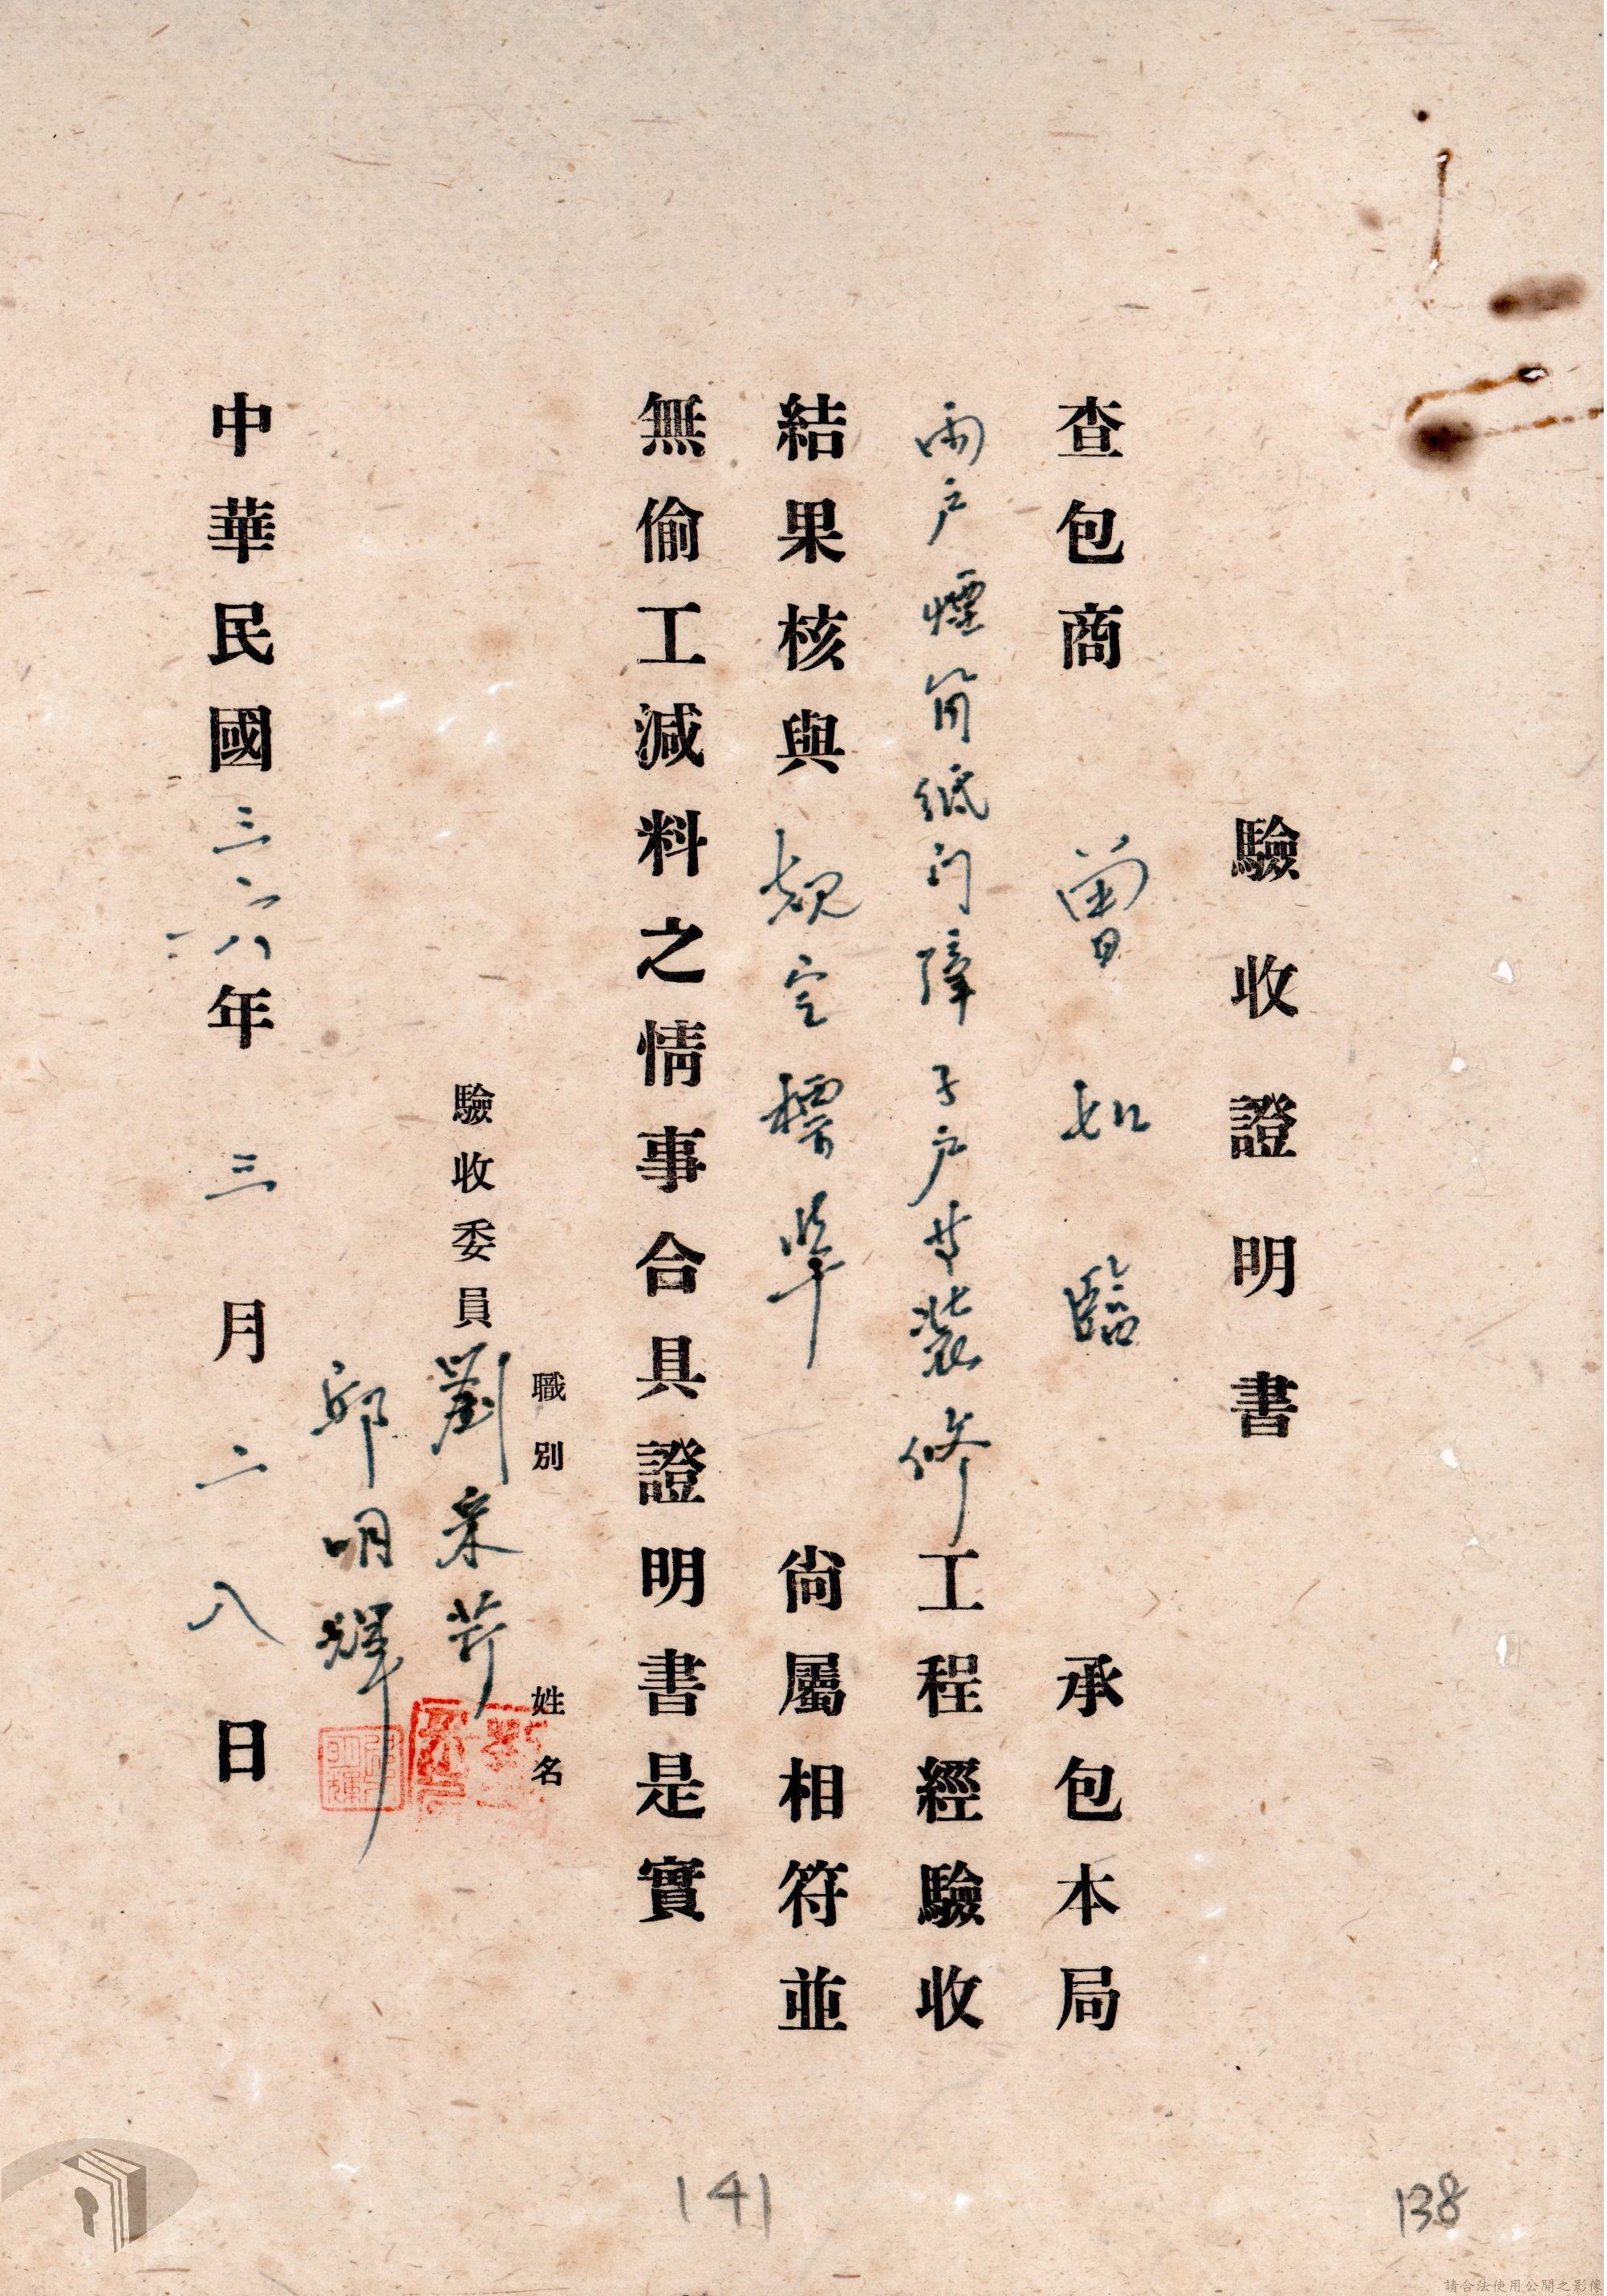 驗收證明書
查包商 曾如臨 承包本局
雨户煙筒紙门障子户等裝修工程經驗收
結果核與 規定標準 尙屬相符並
無偷工減料之情事合具證明書是實
職別 姓名
驗收委員 劉采芹
邱明輝
中華民國三六年三月二八日
141
138
請合法使用公開之影像